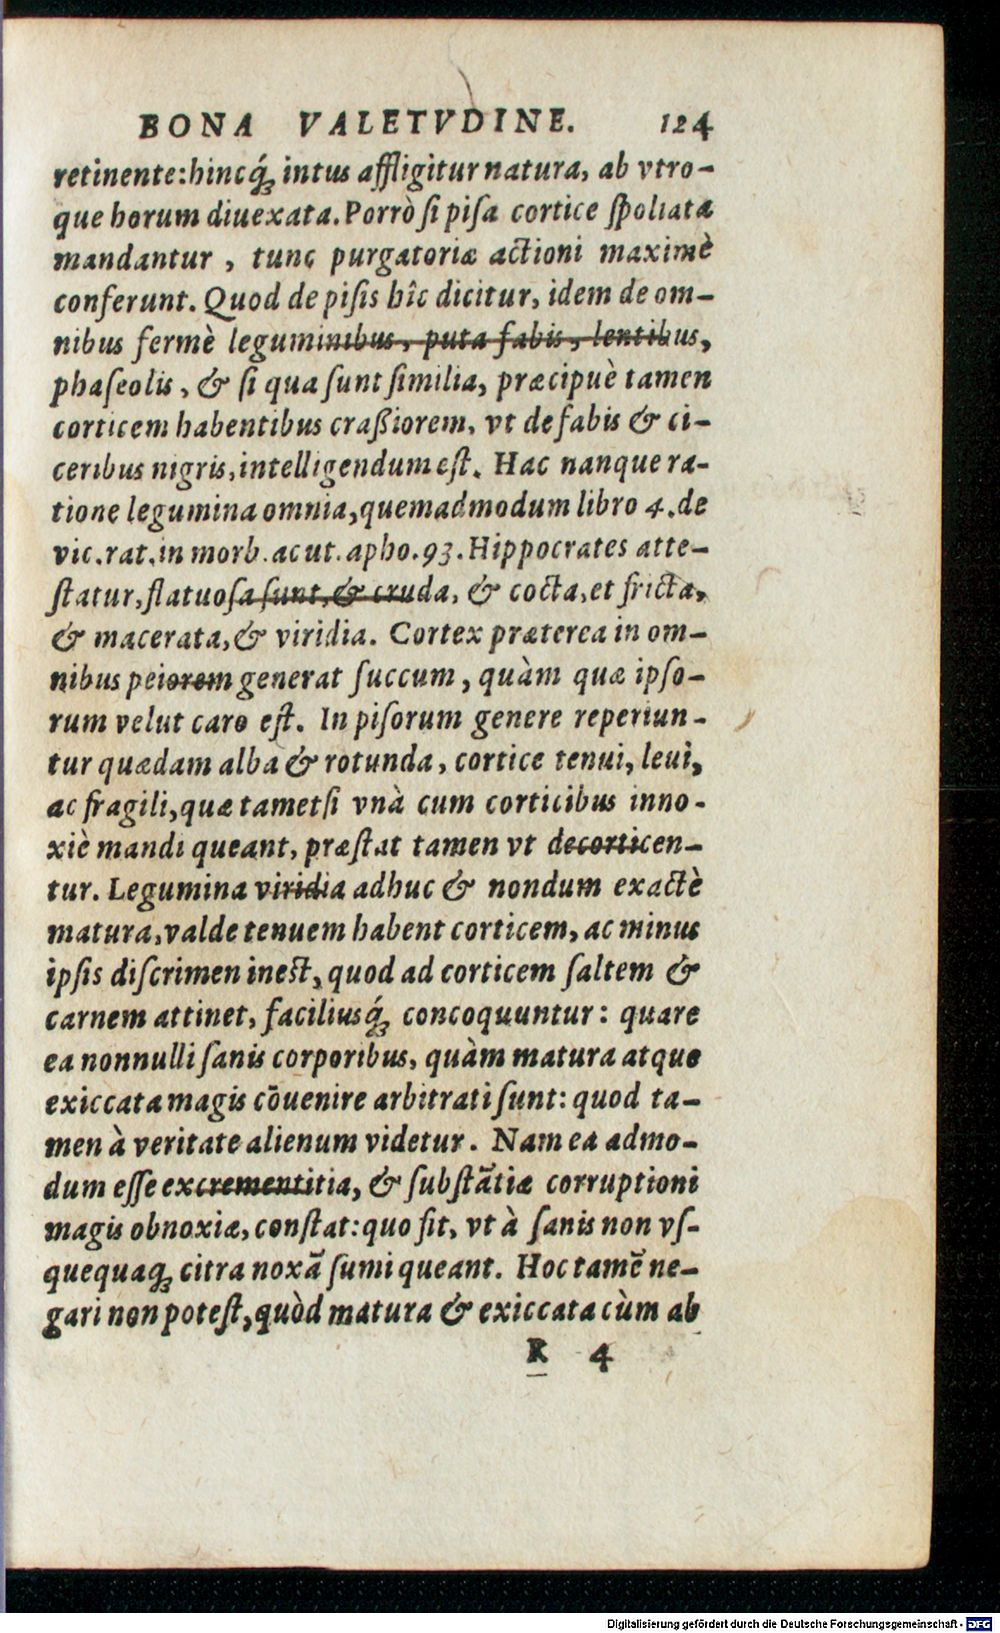 BONA VALETVDINE. 124
retinente: hincq́ꝫ intus affligitur natura, ab vtro-
que horum diuexata. Porrò si pisa cortice spoliatæ
mandantur, tunc purgatoriæ actioni maximè
conferunt. Quod de pisis hîc dicitur, idem de om-
nibus fermè leguminibus, puta fabis, lentibus,
phaseolis, & si qua sunt similia, præcipuè tamen
corticem habentibus craßiorem, vt de fabis & ci-
ceribus nigris, intelligendum est. Hac nanque ra-
tione legumina omnia, quemadmodum libro 4. de
vic. rat. in morb. acut. apho. 93. Hippocrates atte-
statur, flatuosa sunt, & cruda, & cocta, et fricta,
& macerata, & viridia. Cortex præterea in om-
nibus peiorem generat succum, quàm quæ ipso-
rum velut caro est. In pisorum genere reperiun-
tur quædam alba & rotunda, cortice tenui, leui,
ac fragili, quæ tametsi vnà cum corticibus inno-
xiè mandi queant, præstat tamen vt decorticen-
tur. Legumina viridia adhuc & nondum exactè
matura, valde tenuem habent corticem, ac minus
ipsis discrimen inest, quod ad corticem saltem &
carnem attinet, faciliusq́ꝫ concoquuntur: quare
ea nonnulli sanis corporibus, quàm matura atque
exiccata magis cōuenire arbitrati sunt: quod ta-
men à veritate alienum videtur. Nam ea admo-
dum esse excrementitia, & substātiæ corruptioni
magis obnoxiæ, constat: quo fit, vt à sanis non vs-
quequaqꝫ citra noxā sumi queant. Hoc tamē ne-
gari non potest, quòd matura & exiccata cùm ab
R 4
Digitalisierung gefördert durch die Deutsche Forschungsgemeinschaft - DFG